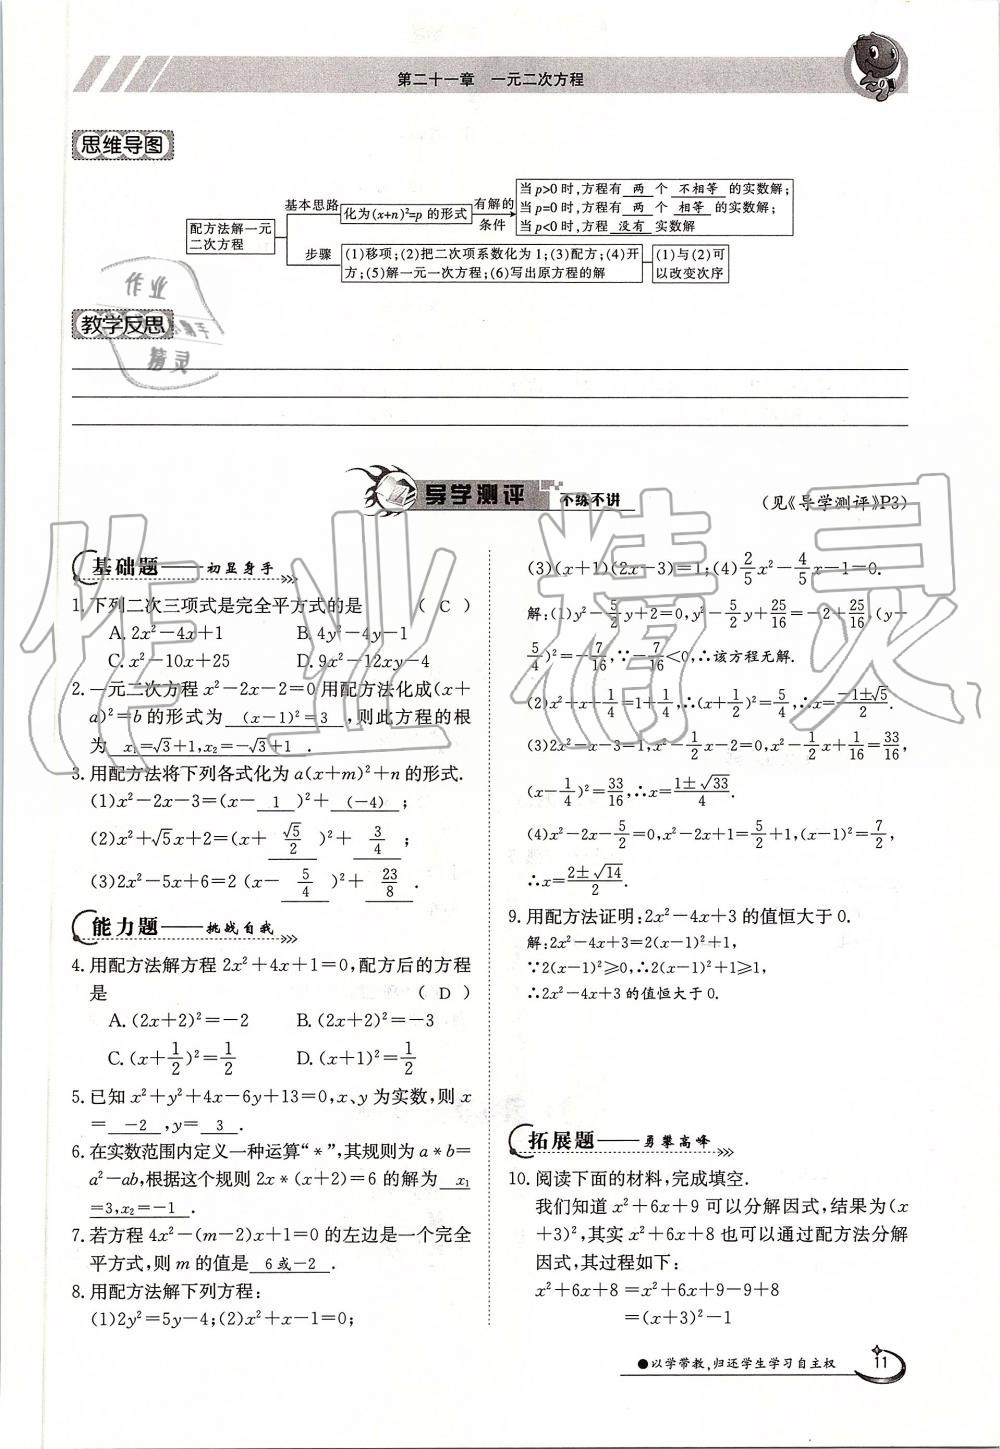 第二十一章 一元二次方程
思维导图
配方法解一元二次方程
基本思路
化为(x+n)²=p 的形式
有解的条件
当 p>0 时,方程有 两 个 不相等 的实数解;
当 p=0 时,方程有 两 个 相等 的实数解;
当 p<0 时,方程 没有 实数解
步骤
(1)移项;(2)把二次项系数化为 1;(3)配方;(4)开
方;(5)解一元一次方程;(6)写出原方程的解
(1)与(2)可
以改变次序
教学反思
导学测评 不练不讲
(见《导学测评》P3)
基础题——初显身手
1. 下列二次三项式是完全平方式的是 ( C )
A. 2x²-4x+1 B. 4y²-4y-1
C. x²-10x+25 D. 9x²-12xy-4
2. 一元二次方程 x²-2x-2=0 用配方法化成(x+
a)²=b 的形式为 (x-1)²=3 ,则此方程的根
为 x₁=√3+1,x₂=-√3+1 .
3. 用配方法将下列各式化为 a(x+m)²+n 的形式.
(1)x²-2x-3=(x- 1 )²+ (-4) ;
(2)x²+√5x+2=(x+ √5/2 )²+ 3/4 ;
(3)2x²-5x+6=2 (x- 5/4 )²+ 23/8 .
能力题——挑战自我
4. 用配方法解方程 2x²+4x+1=0,配方后的方程
是 ( D )
A. (2x+2)²=-2 B. (2x+2)²=-3
C. (x+1/2)²=1/2 D. (x+1)²=1/2
5. 已知 x²+y²+4x-6y+13=0,x、y 为实数,则 x
= -2 ,y= 3 .
6. 在实数范围内定义一种运算“*”,其规则为 a*b=
a²-ab,根据这个规则 2x*(x+2)=6 的解为 x₁
=3,x₂=-1 .
7. 若方程 4x²-(m-2)x+1=0 的左边是一个完全
平方式,则 m 的值是 6 或-2 .
8. 用配方法解下列方程:
(1)2y²=5y-4;(2)x²+x-1=0;
(3)(x+1)(2x-3)=1;(4)2/5x²-4/5x-1=0.
解:(1)y²-5/2y+2=0,y²-5/2y+25/16=-2+25/16,(y-
5/4)²=-7/16,∵-7/16<0,∴该方程无解.
(2)x²+x+1/4=1+1/4,∴(x+1/2)²=5/4,∴x=(-1±√5)/2.
(3)2x²-x-3=1,x²-1/2x-2=0,x²-1/2x+1/16=33/16,
(x-1/4)²=33/16,∴x=(1±√33)/4.
(4)x²-2x-5/2=0,x²-2x+1=5/2+1,(x-1)²=7/2,
∴x=(2±√14)/2.
9. 用配方法证明:2x²-4x+3 的值恒大于 0.
解:2x²-4x+3=2(x-1)²+1,
∵2(x-1)²≥0,∴2(x-1)²+1≥1,
∴2x²-4x+3 的值恒大于 0.
拓展题——勇攀高峰
10. 阅读下面的材料,完成填空.
我们知道 x²+6x+9 可以分解因式,结果为(x
+3)²,其实 x²+6x+8 也可以通过配方法分解
因式,其过程如下:
x²+6x+8=x²+6x+9-9+8
=(x+3)²-1
●以学带教,归还学生学习自主权
11
作业精灵